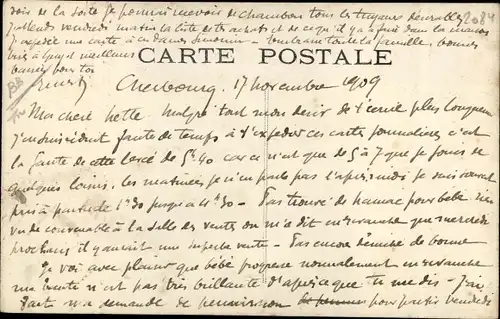 sois de la sorte je pourrai recevoir de chambon tous les tuyaux désirables 2084
j'attends vendredi matin la liste des achats et de ce qu'il y a à faire dans la maison
ma carte à ces dames Tout toute la famille, bonnes
à et meilleurs
baisers pour toi
CARTE POSTALE
Cherbourg, 17 novembre 1909
Ma chère Malgré tout mon désir de t'écrire plus longuement
faute de temps à t'expédier ces cartes journalières c'est
la faute de cette levée de 5h40 car ce n'est que de 5 à 7 que je jouis de
quelques loisirs, les matinées je n'en parle pas l'après midi je suis souvent
pris à partir de 1h30 jusqu'à 4h30 - Pas trouvé de hamac pour bébé rien
vu de convenable à la salle des ventes on m'a dit en revanche que mercredi
prochain il y aurait une superbe vente - Pas encore déniché de bonne
Je vois avec plaisir que bébé progresse normalement en revanche
ta santé n'est pas très brillante d'après ce que tu me dis - J'ai
demandé de permission pour partir vendredi